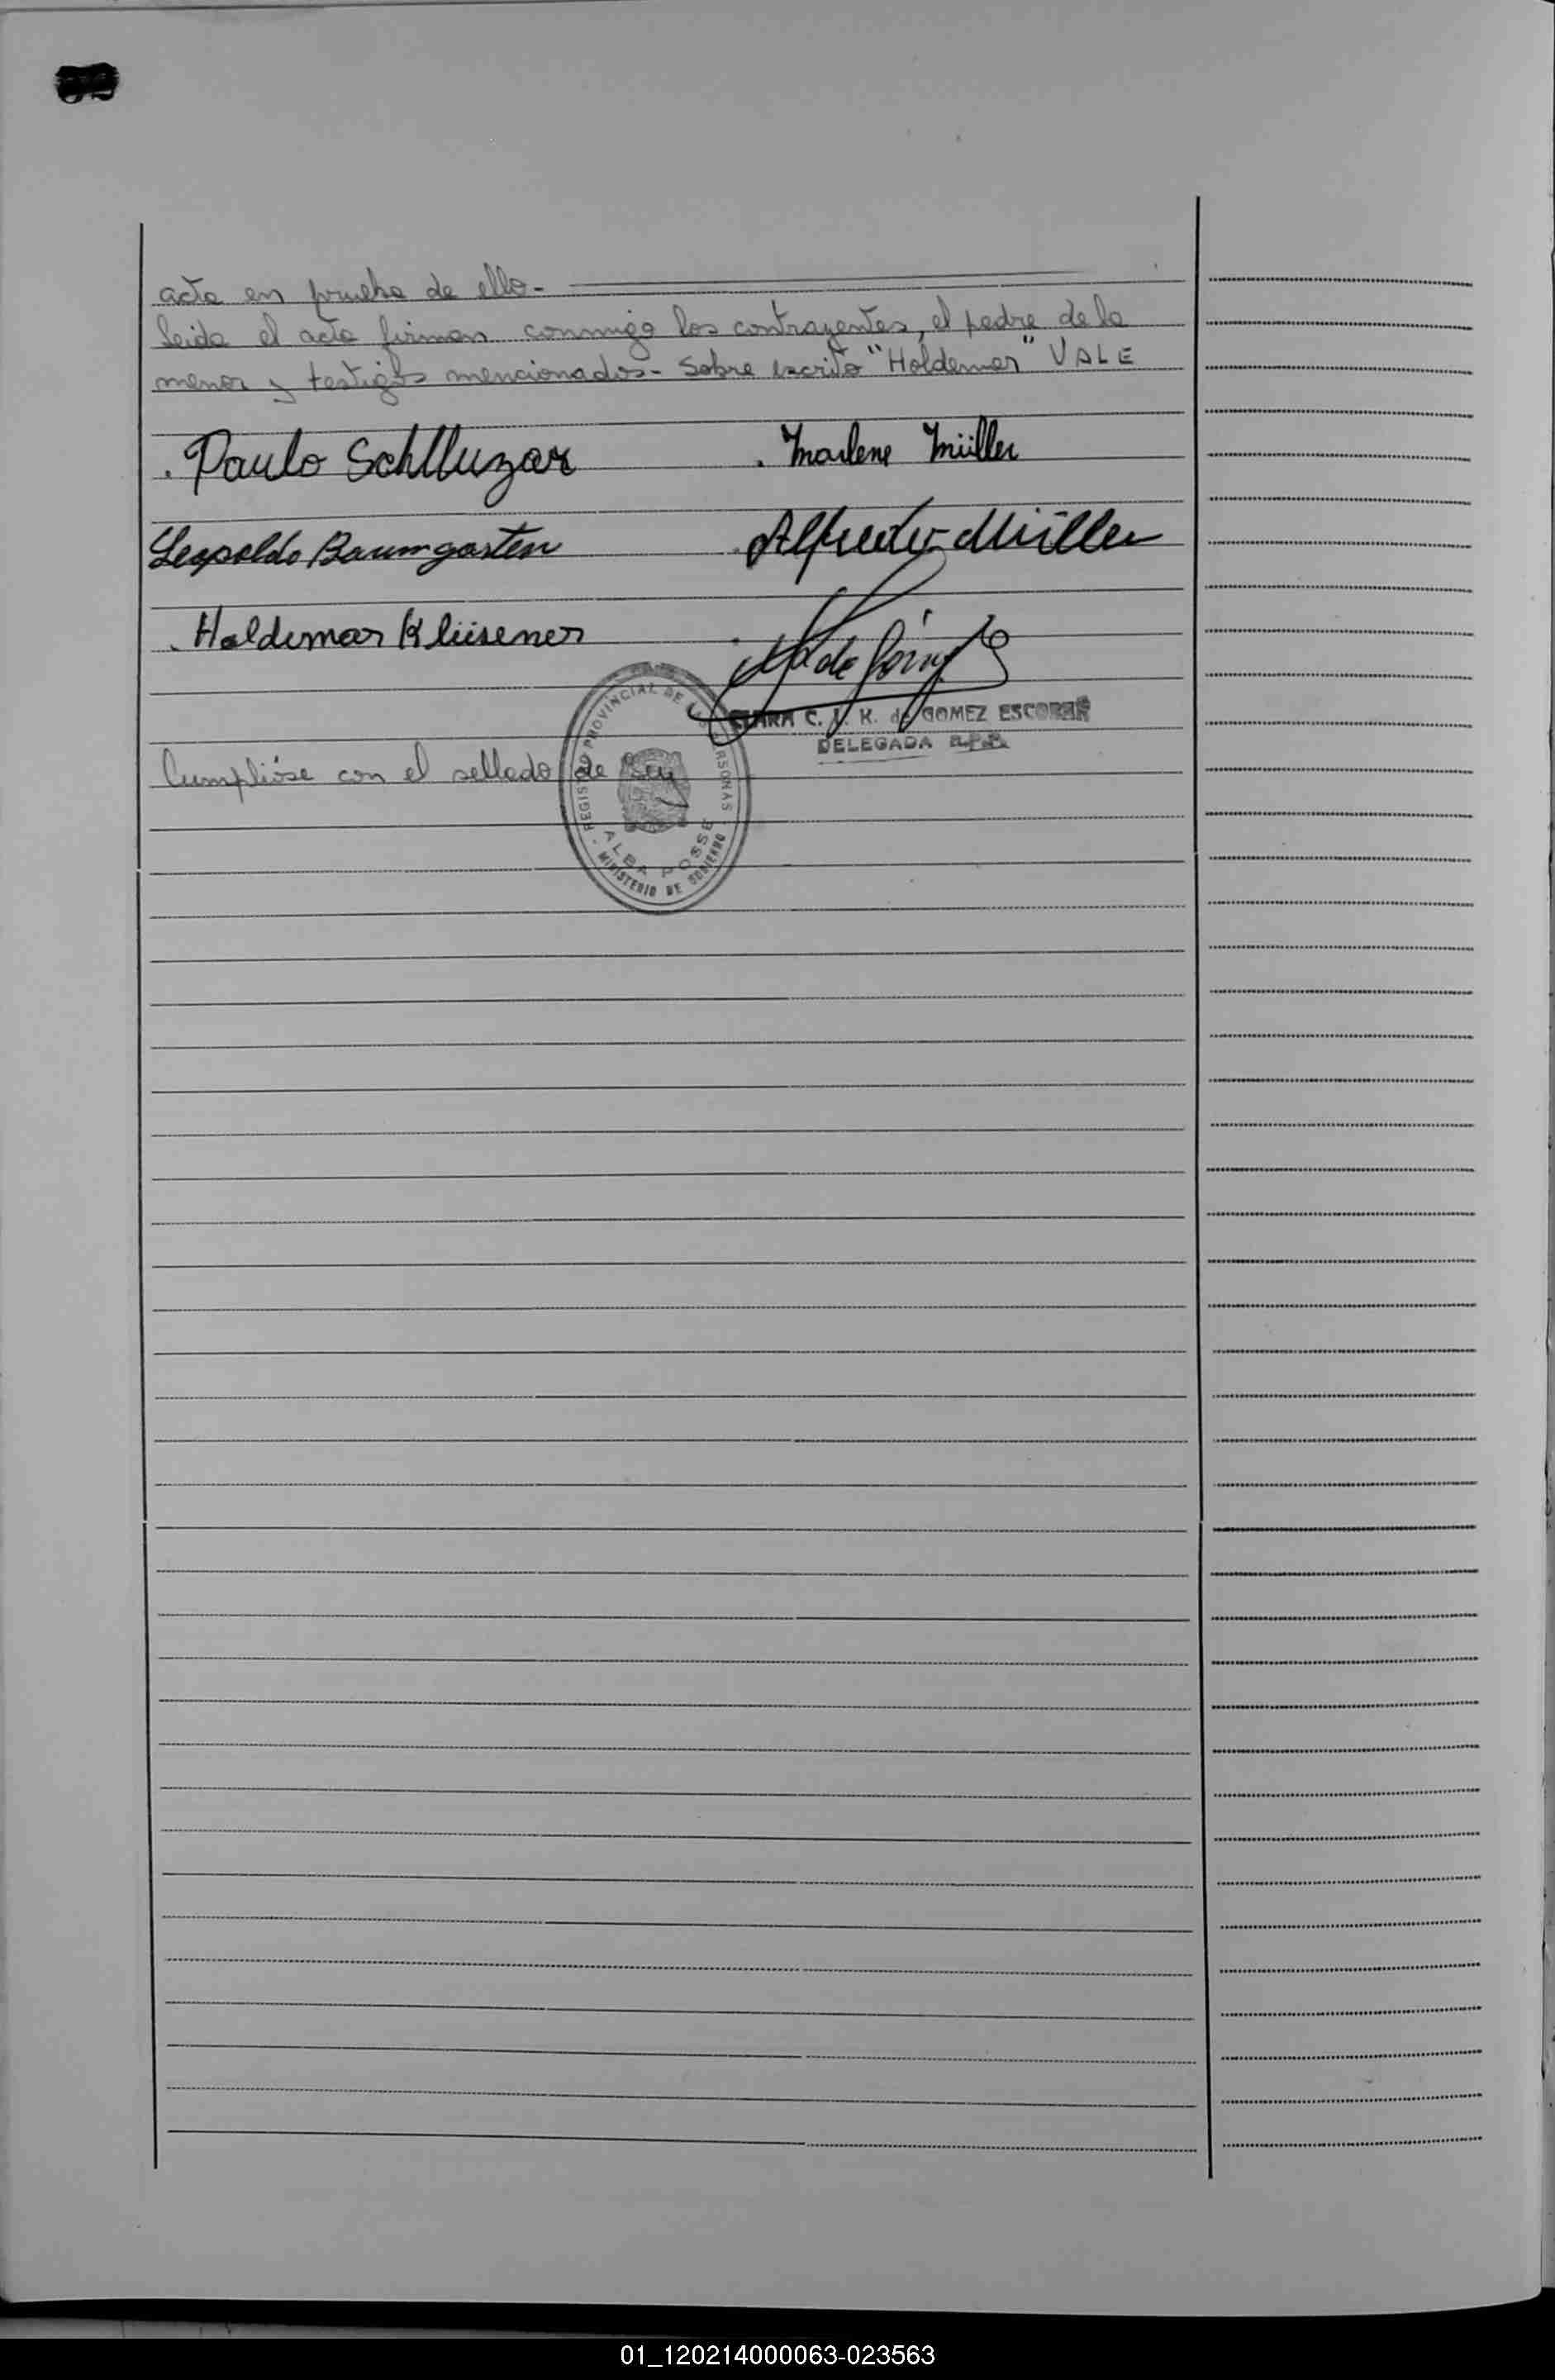 acta en prueba de ello.-
Leida el acta firman conmigo los contrayentes, el padre de la
menor y testigos mencionados.- Sobre escrito "Holdemar" VALE
. Paulo Schlluzar . Marlene Müller
Leopoldo Baumgarten . Alfredo Müller
. Holdemar Klüsener
CLARA C. K. de GOMEZ ESCOBAR
DELEGADA R.P.P.
Cumplióse con el sellado de Ley
REGISTRO PROVINCIAL DE LAS PERSONAS
ALBA POSSE
MINISTERIO DE GOBIERNO
01_120214000063-023563